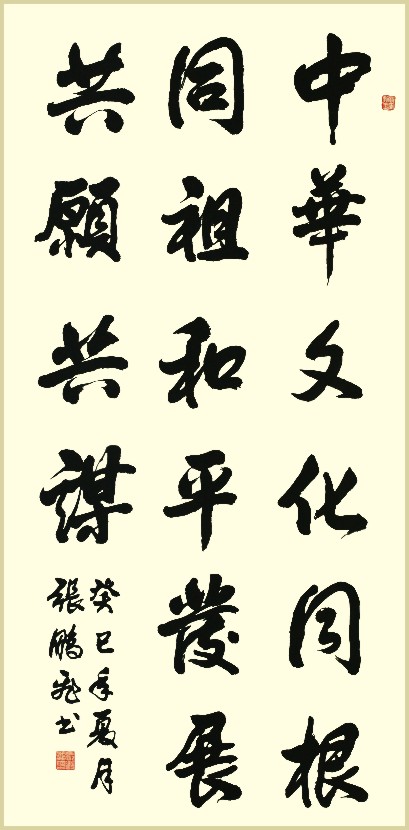 中華文化同根
同祖和平發展
共願共謀
癸巳年夏月
張鵬飛书